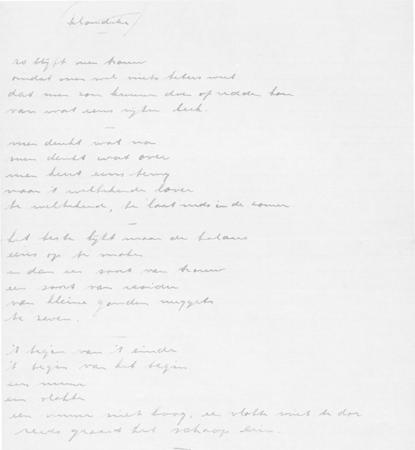 (klondike)
zo blijft men trouw
omdat men wel niets beters weet
dat men zou kunnen doen of redden kon
van wat eens rijker leek.
—
men denkt wat na
men denkt wat over
men keert eens terug
naar 't welbekende
te welbekend, te laat reeds in de zomer
—
het beste lijkt maar de balans
eens op te maken
en dan een soort van trouw
een soort van
van kleine gouden nuggets
te zeven.
't begin van 't einde
't begin van het begin
een muur
een vlakte
een muur niet hoog, een vlakte niet te dor
reeds graast het schaap